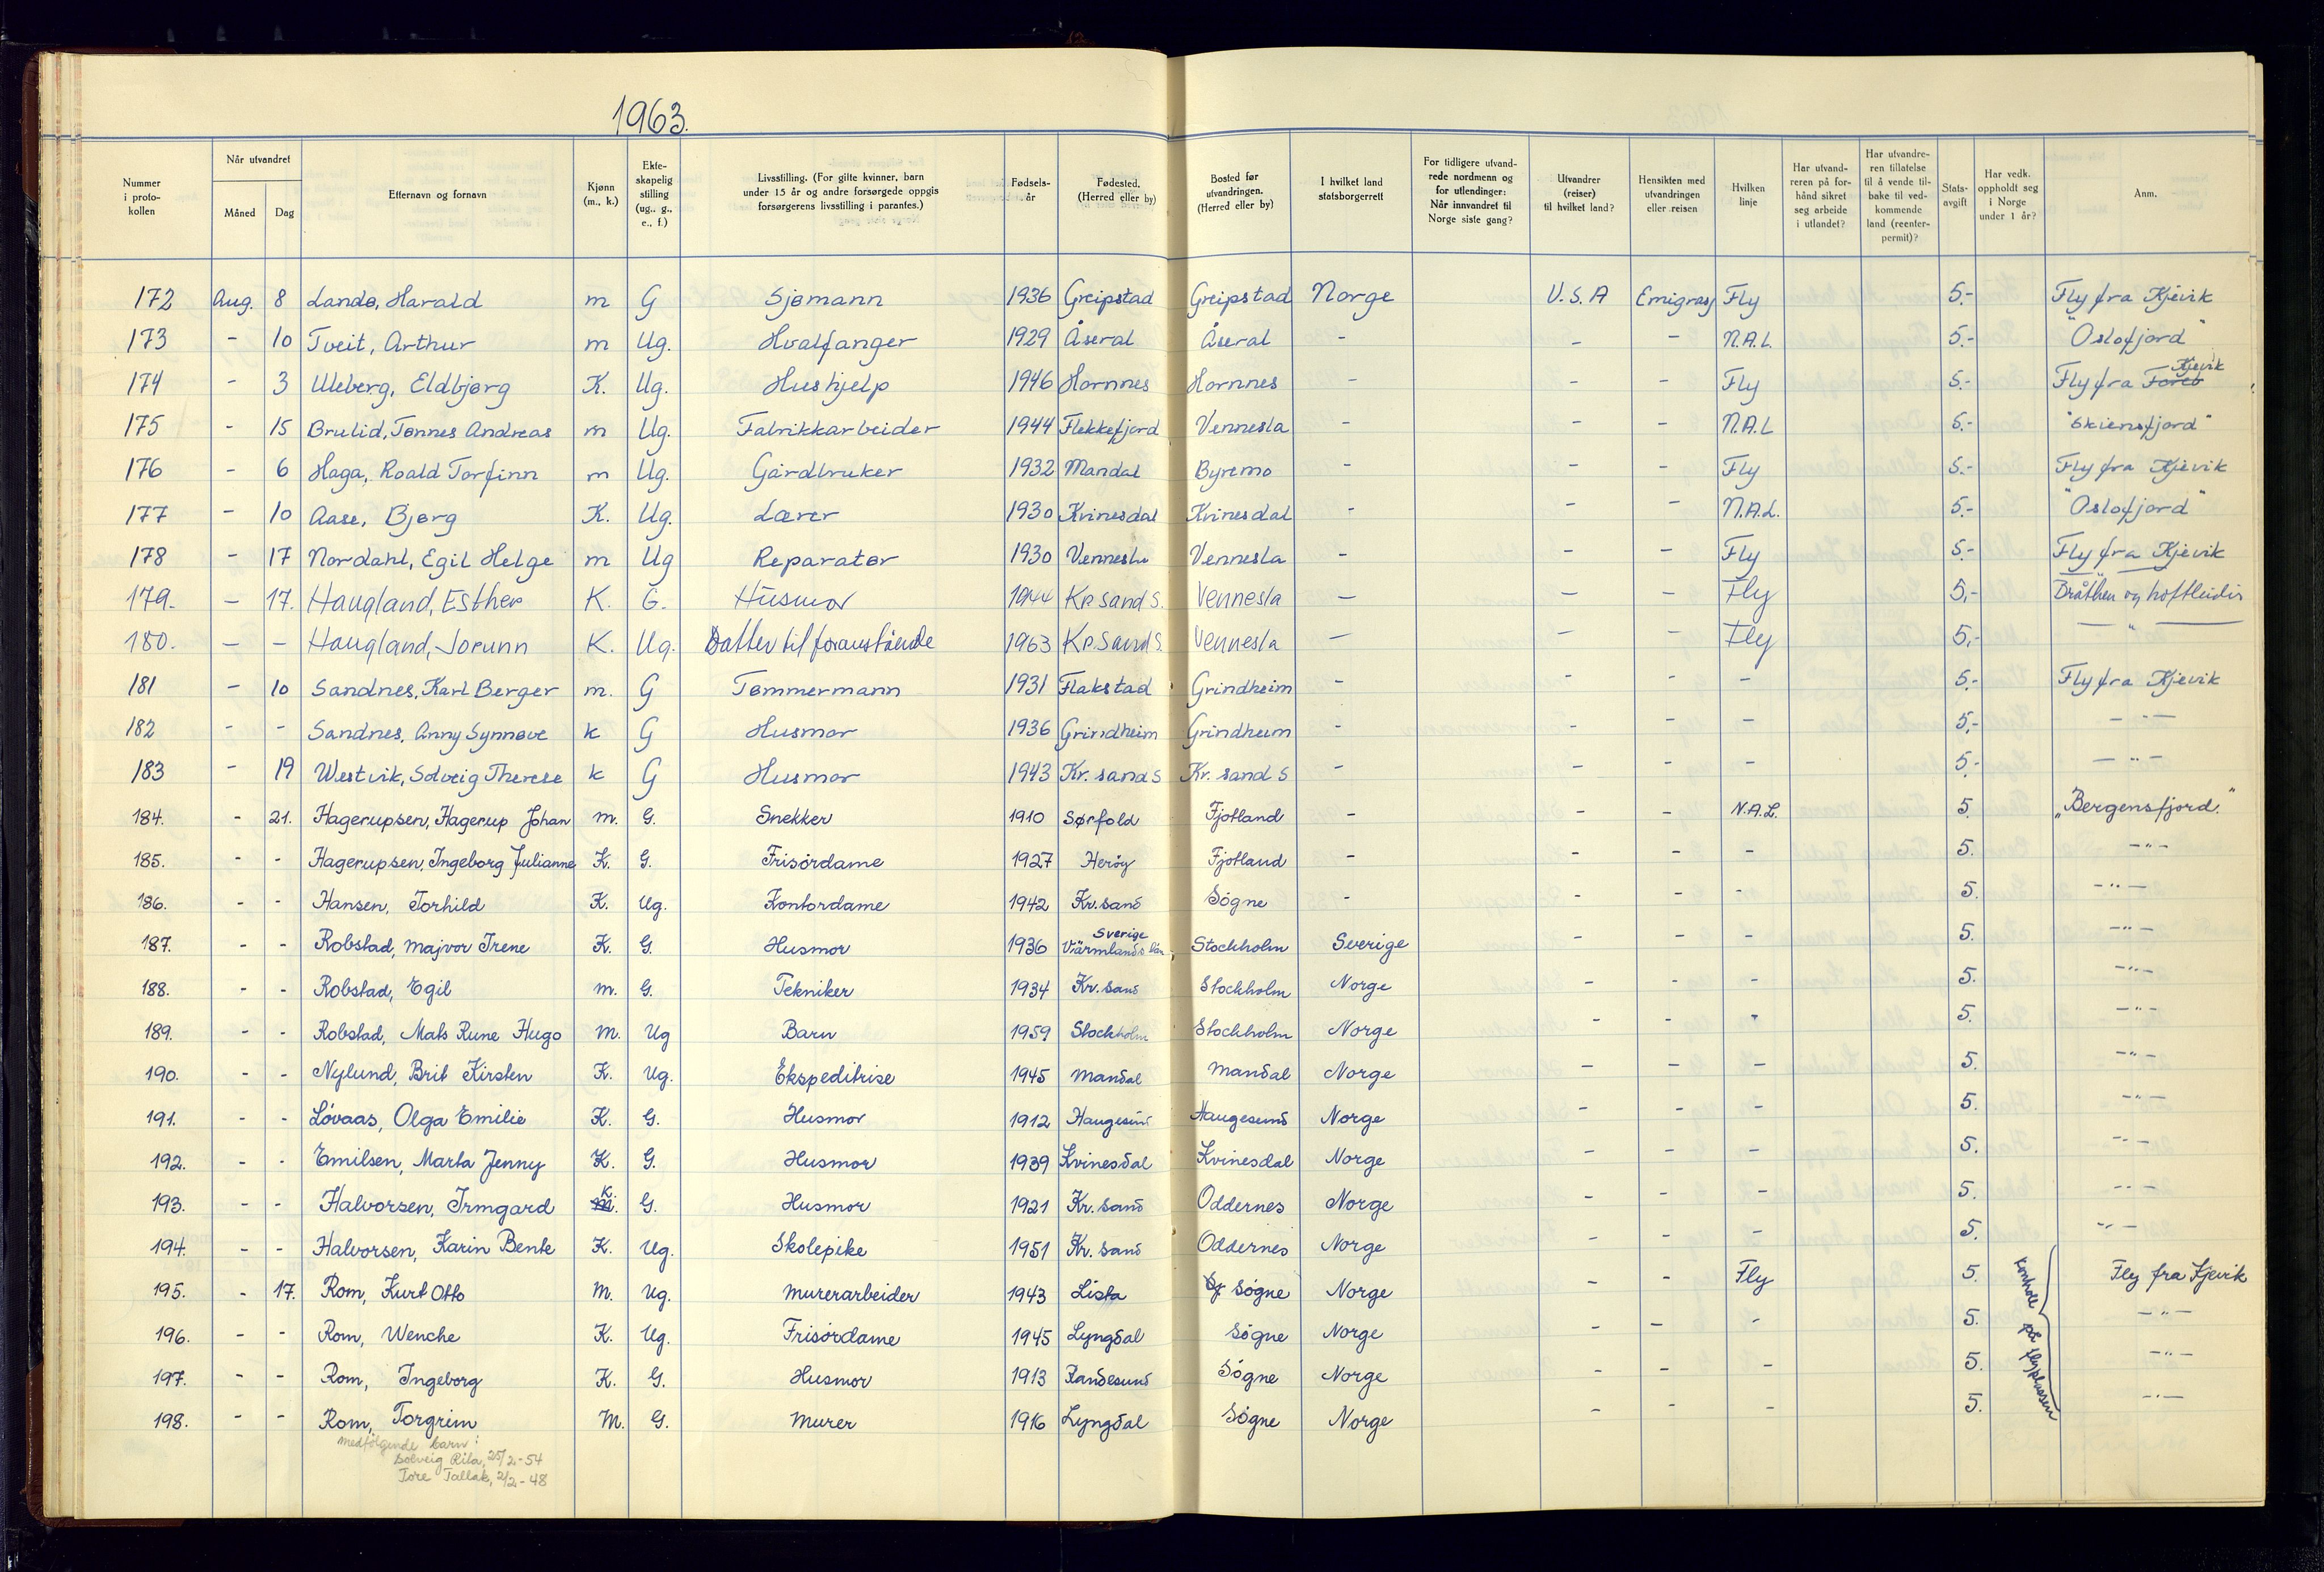 1963.
Nummer i proto-kollen | Når utvandret Måned | Dag | Etternavn og fornavn | Kjønn (m., k.) | Ekte-skapelig stilling (ug., g., e., f.) | Livsstilling. (For gifte kvinner, barn under 15 år og andre forsørgede oppgis forsørgerens livsstilling i parantes.) | Fødsels-år | Fødested. (Herred eller by) | Bosted før utvandringen. (Herred eller by) | I hvilket land statsborgerrett | For tidligere utvand-rede nordmenn og for utlendinger: Når innvandret til Norge siste gang? | Utvandrer (reiser) til hvilket land? | Hensikten med utvandringen eller reisen | Hvilken linje | Har utvand-reren på for-hånd sikret seg arbeide i utlandet? | Har utvandre-ren tillatelse til å vende til-bake til ved-kommende land (reenter-permit)? | Stats-avgift | Har vedk. oppholdt seg i Norge under 1 år? | Anm.
172 Aug. 8 Landø, Harald m G Sjømann 1936 Greipstad Greipstad Norge U.S.A Emigrasj Fly 5.- Fly fra Kjevik
173 - 10 Tveit, Arthur m Ug. Hvalfanger 1929 Åseral Åseral - - - N.A.L. 5.- "Oslofjord"
174 - 3 Uleberg, Eldbjørg K. Ug. Hushjelp 1946 Hornnes Hornnes - - - Fly 5.- Fly fra Kjevik
175 - 15 Brulid, Tønnes Andreas m Ug. Fabrikkarbeider 1944 Flekkefjord Vennesla - - - N.A.L 5.- "Skiensfjord"
176 - 6 Haga, Roald Torfinn m Ug. Gårdbruker 1932 Mandal Byremo - - - Fly 5.- Fly fra Kjevik
177 - 10 Aase, Bjørg K. Ug. Lærer 1930 Kvinesdal Kvinesdal - - - N.A.L. 5.- "Oslofjord"
178 - 17 Nordahl, Egil Helge m Ug Reparatør 1930 Vennesla Vennesla - - - Fly 5.- Fly fra Kjevik
179. - 17. Haugland, Esther K. G. Husmor 1944 Kr.sand S. Vennesla - - - Fly 5,- Bråthen og loftleidir
180. - - Haugland, Jorunn K. Ug. Datter til foranstående 1963 Kr.sand S. Vennesla - - - Fly 5,- — " —
181 - 10 Sandnes, Karl Berger m. G Tømmermann 1931 Flakstad Grindheim - - - - 5.- Fly fra Kjevik
182 - - Sandnes, Anny Synnøve k G Husmor 1936 Grindheim Grindheim - - - - 5,- — " —
183 - 19 Westvik, Solveig Therese k G Husmor 1943 Kr. sand S Kr. sand S - - - - 5,- — " —
184. - 21. Hagerupsen, Hagerup Johan m. G. Snekker 1910 Sørfold Fjotland - - - N.A.L. 5. "Bergensfjord."
185. - - Hagerupsen, Ingeborg Julianne K. G. Frisørdame 1927 Herøy Fjotland - - - - 5. - " -
186. - - Hansen, Torhild K. Ug. Kontordame 1942 Kr.sand Søgne - - - - 5. - " -
187. - - Robstad, Majvor Irene K. G. Husmor 1936 Sverige Värmlands län Stockholm Sverige - - - 5. - " -
188. - - Robstad, Egil m. G. Tekniker 1934 Kr. sand Stockholm Norge - - - 5. - " -
189. - - Robstad, Mats Rune Hugo M. Ug Barn 1959 Stockholm Stockholm Norge - - - 5. - " -
190. - - Nylund, Brit Kirsten K. Ug. Ekspeditrise 1945 Mandal Mandal Norge - - - 5. - " -
191. - - Løvaas, Olga Emilie K. G. Husmor 1912 Haugesund Haugesund Norge - - - 5. - " -
192. - - Emilsen, Marta Jenny K. G. Husmor 1939 Kvinesdal Kvinesdal Norge - - - 5. - " -
193. - - Halvorsen, Irmgard K. G. Husmor 1921 Kr. sand Oddernes Norge - - - 5. - " -
194. - - Halvorsen, Karin Bente K. Ug. Skolepike 1951 Kr. sand Oddernes Norge - - - 5. - " -
195. - 17. Rom, Kurt Otto M. Ug. Murerarbeider 1943 Lista Søgne Norge - - Fly 5. Fly fra Kjevik
196. - - Rom, Wenche K. Ug. Frisørdame 1945 Lyngdal Søgne Norge - - - 5. - " -
197. - - Rom, Ingeborg K. G. Husmor 1913 Randesund Søgne Norge - - - 5. - " -
198. - - Rom, Torgrim M. G. Murer 1916 Lyngdal Søgne Norge - - - 5. - " -
kontroll på flyplassen
medfølgende barn:
Solveig Rita, 25/2-54
Tore Tallak, 2/2-48